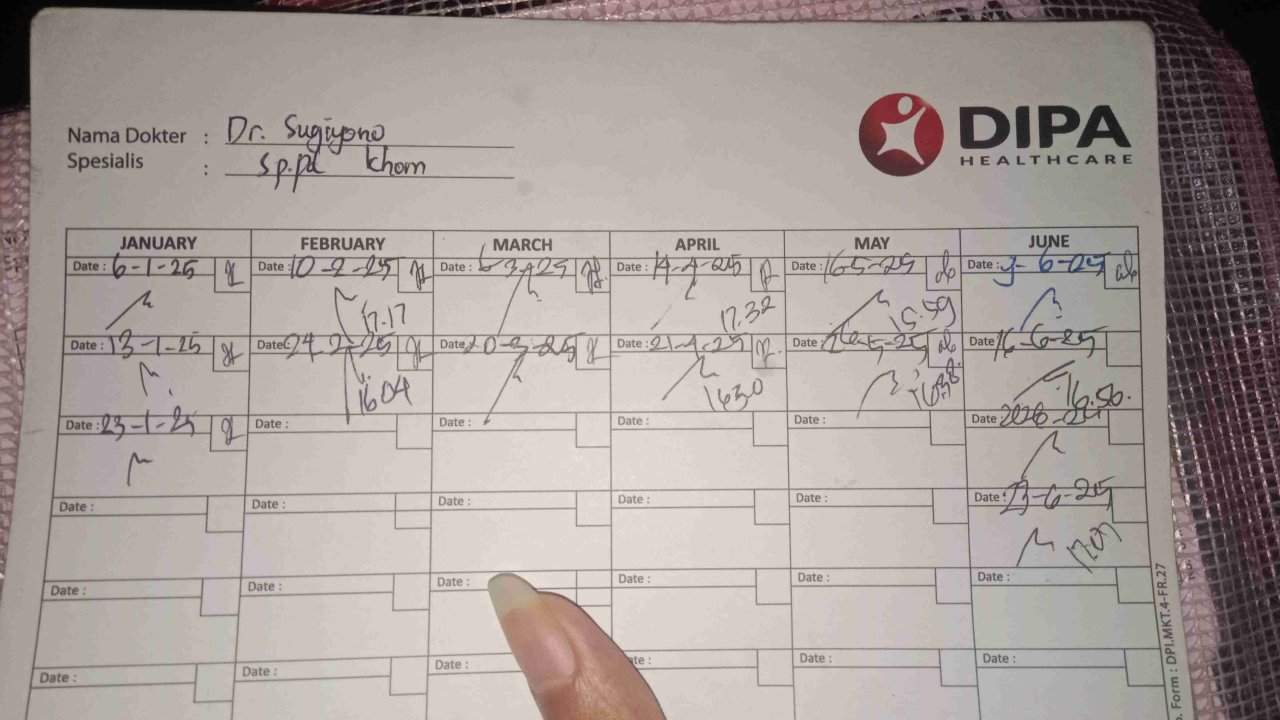 DIPA
HEALTHCARE
Nama Dokter : Dr. Sugiyono
Spesialis : Sp.pd Khom
JANUARY FEBRUARY MARCH APRIL MAY JUNE
Date : 6-1-25 Date : 10-2-25 Date : 6-3-25 Date : 14-4-25 Date : 16-5-25 Date : 3-6-25
17.17 17.32 15.59
Date : 13-1-25 Date : 24-2-25 Date : 20-3-25 Date : 21-4-25 Date : 26-5-25 Date : 16-6-25
1604 1630 1638 16.56.
Date : 23-1-25 Date : Date : Date : Date : Date :
Date : Date : Date : Date : Date : Date : 23-6-25
Date : Date : Date : Date : Date : Date :
Date : Date : Date : Date : Date : Date :
Form : DPI.MKT.4-FR.27